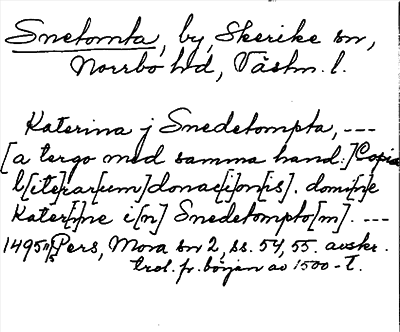 Snetomta, by, Skerike sn,
Norrbo hd, Västm. l.
Katerina j Snedetompta, ---
[a tergo med samma hand:] Copia
l[ite]rar[um] donac[i]on[is]. domi[n]e
Kater[i]ne i[n] Snedetompto[m]. ---
1495 Pers, Mora sn 2, ss. 54, 55. avskr.
trol. fr. början av 1500-t.